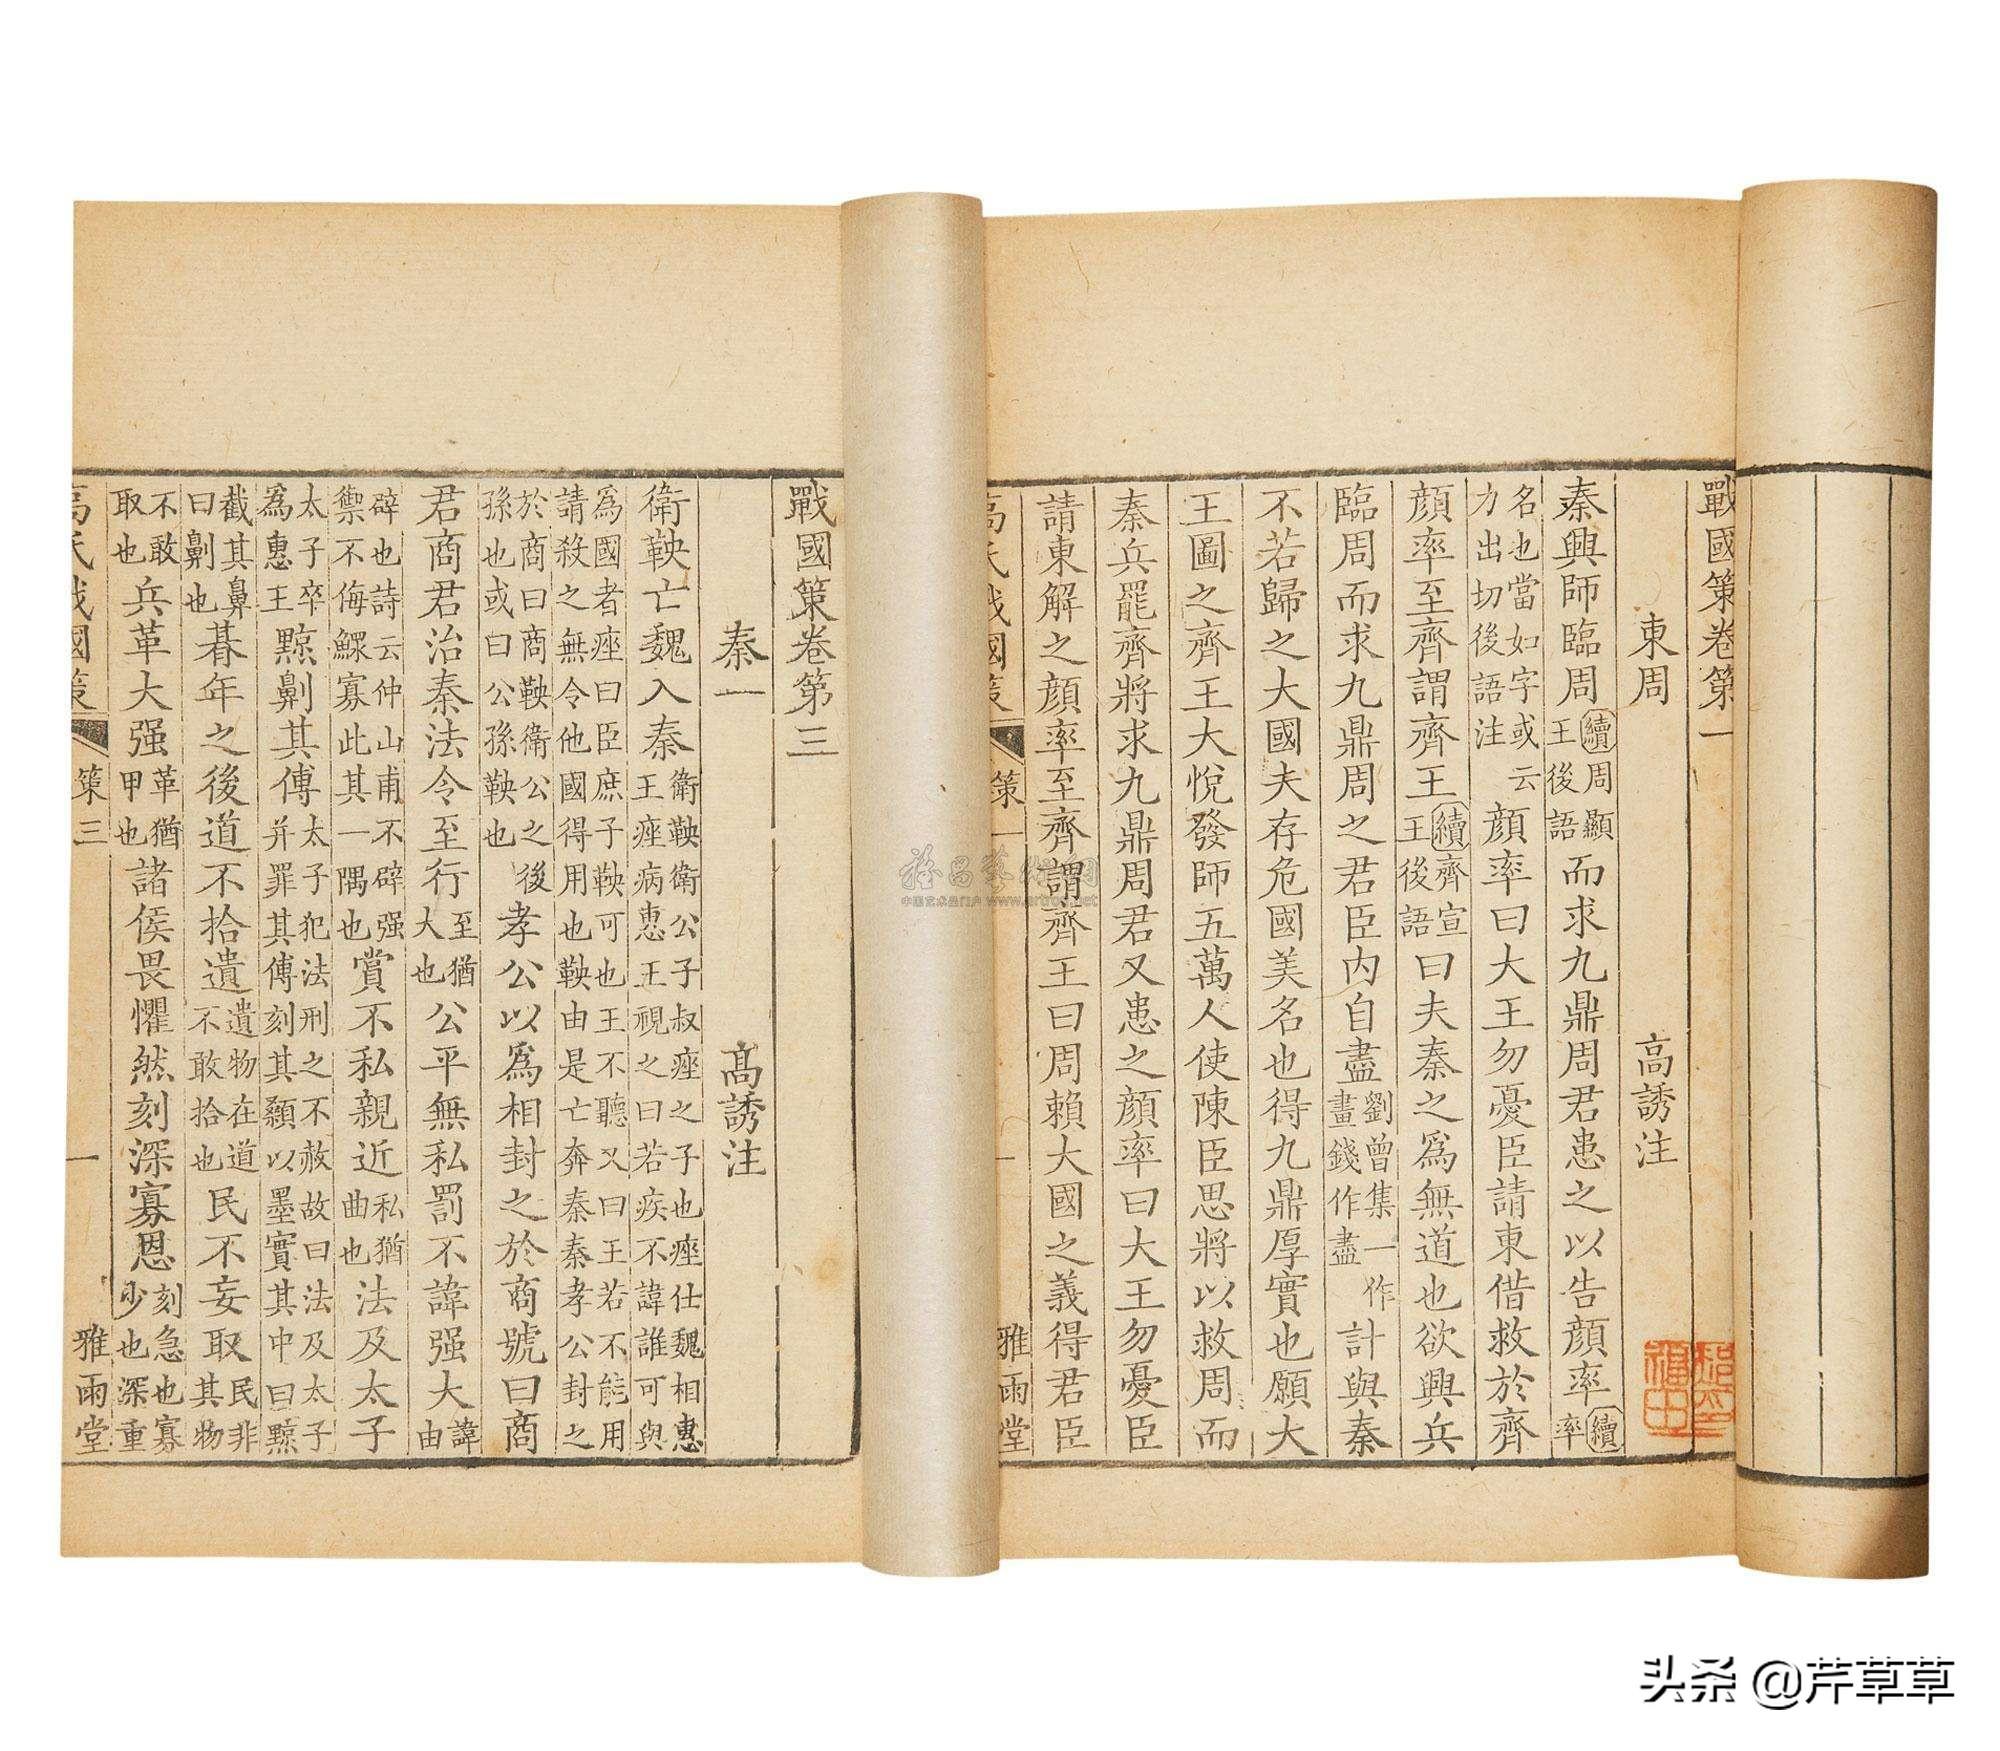 戰國策卷第一
東周 高誘注
秦興師臨周續周顯王後語而求九鼎周君患之以告顏率續率
名也當如字或云力出切後語注顏率曰大王勿憂臣請東借救於齊
顏率至齊謂齊王續齊宣王後語曰夫秦之爲無道也欲興兵
臨周而求九鼎周之君臣内自盡劉曾集一作畫錢作盡計與秦
不若歸之大國夫存危國美名也得九鼎厚實也願大
王圖之齊王大悅發師五萬人使陳臣思將以救周而
秦兵罷齊將求九鼎周君又患之顏率曰大王勿憂臣
請東解之顏率至齊謂齊王曰周賴大國之義得君臣
高氏戰國策 策一 一 雅雨堂
戰國策卷第三
秦一 高誘注
衛鞅亡魏入秦衛鞅衛公子叔痤之子也痤仕魏相惠王痤病惠王視之曰若疾不諱誰可與
爲國者痤曰臣庶子鞅可也王不聽又曰王若不能用請殺之無令他國得用也鞅由是亡奔秦秦孝公封之
於商曰商鞅衛公之後孫也或曰公孫鞅也孝公以爲相封之於商號曰商
君商君治秦法令至行至猶大也公平無私罰不諱强大諱由
辟也詩云仲山甫不辟强禦不侮鰥寡此其一隅也賞不私親近私猶曲也法及太子
太子卒爲惠王黥劓其傅太子犯法刑之不赦故曰法及太子并罪其傅刻其顙以墨實其中曰黥
截其鼻曰劓也朞年之後道不拾遺遺物在道不敢拾也民不妄取民非其物
不敢取也兵革大强革猶甲也諸侯畏懼然刻深寡恩刻急也寡少也深重
高氏戰國策 策三 一 雅雨堂
中国艺术品门户 www.artron.net
头条 @芹草草